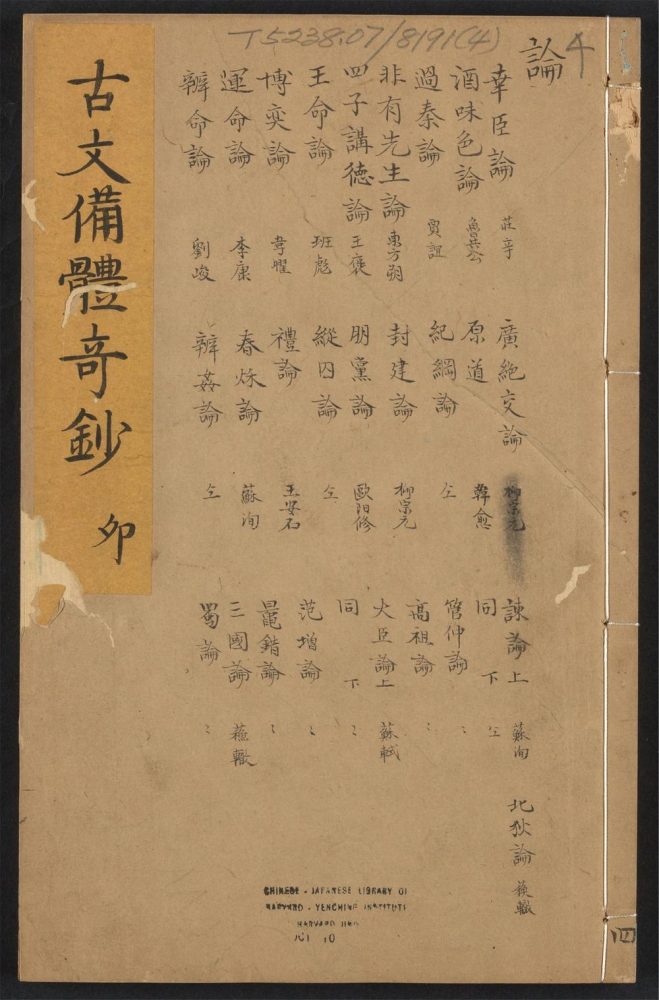 T5238.07/8191(4)
4
論
幸臣論 莊辛
酒味色論 魯共公
過秦論 賈誼
非有先生論 東方朔
四子講德論 王褒
王命論 班彪
博奕論 韋曜
運命論 李康
辨命論 劉峻
廣絶交論
原道 韓愈
紀綱論 仝
封建論 柳宗元
朋黨論 歐阳修
縱囚論 仝
禮論 王安石
春秌論 蘇洵
辨姦論 仝
諫論上 蘇洵
同 下 仝
管仲論 〻
高祖論 〻
大臣論上 蘇軾
同 下 〻
范增論 〻
鼂錯論 〻
三國論 蘓轍
蜀論 〻
北狄論 蘓轍
古文備體奇鈔 卯
CHINESE - JAPANESE LIBRARY OF
HARVARD - YENCHING INSTITUTE
HARVARD
10
四